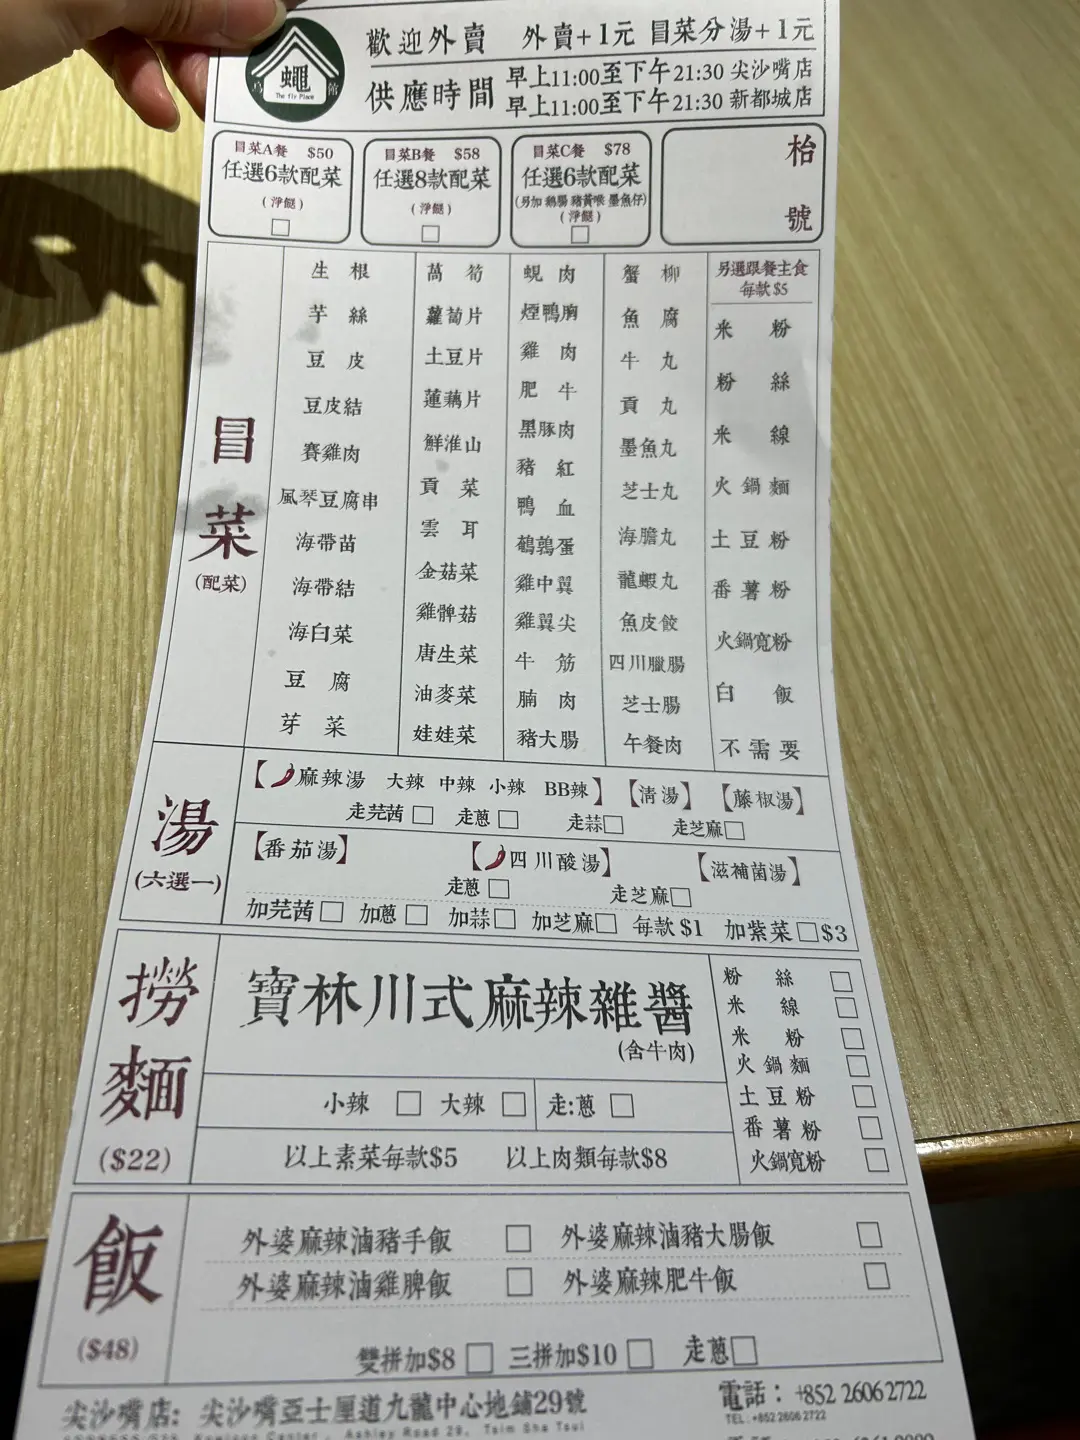 烏蠅館
The fly Place
歡迎外賣 外賣+1元 冒菜分湯+1元
供應時間 早上11:00至下午21:30 尖沙嘴店
早上11:00至下午21:30 新都城店
冒菜A餐 $50
任選6款配菜
(淨餸)
冒菜B餐 $58
任選8款配菜
(淨餸)
冒菜C餐 $78
任選6款配菜
(另加 鵝腸 豬黃喉 墨魚仔)
(淨餸)
枱號
冒菜
(配菜)
生根
芋絲
豆皮
豆皮結
賽雞肉
風琴豆腐串
海帶苗
海帶結
海白菜
豆腐
芽菜
萵筍
蘿蔔片
土豆片
蓮藕片
鮮淮山
貢菜
雲耳
金菇菜
雞髀菇
唐生菜
油麥菜
娃娃菜
蜆肉
煙鴨胸
雞肉
肥牛
黑豚肉
豬紅
鴨血
鵪鶉蛋
雞中翼
雞翼尖
牛筋
腩肉
豬大腸
蟹柳
魚腐
牛丸
貢丸
墨魚丸
芝士丸
海膽丸
龍蝦丸
魚皮餃
四川臘腸
芝士腸
午餐肉
另選跟餐主食
每款 $5
米粉
粉絲
米線
火鍋麵
土豆粉
番薯粉
火鍋寬粉
白飯
不需要
湯
(六選一)
【麻辣湯 大辣 中辣 小辣 BB辣】 【清湯】 【藤椒湯】
走芫茜 □ 走蔥 □ 走蒜 □ 走芝麻 □
【番茄湯】 【四川酸湯】 【滋補菌湯】
走蔥 □ 走芝麻 □
加芫茜 □ 加蔥 □ 加蒜 □ 加芝麻 □ 每款 $1 加紫菜 □ $3
撈麵
($22)
寶林川式麻辣雜醬
(含牛肉)
小辣 □ 大辣 □ 走:蔥 □
以上素菜每款$5 以上肉類每款$8
粉絲 □
米線 □
米粉 □
火鍋麵 □
土豆粉 □
番薯粉 □
火鍋寬粉 □
飯
($48)
外婆麻辣滷豬手飯 □ 外婆麻辣滷豬大腸飯 □
外婆麻辣滷雞脾飯 □ 外婆麻辣肥牛飯 □
雙拼加$8 □ 三拼加$10 □ 走蔥 □
尖沙嘴店: 尖沙嘴亞士厘道九龍中心地鋪29號
電話: +852 2606 2722
TEL: +852 2606 2722
Kowloon Center, Ashley Road 29, Tsim Sha Tsui